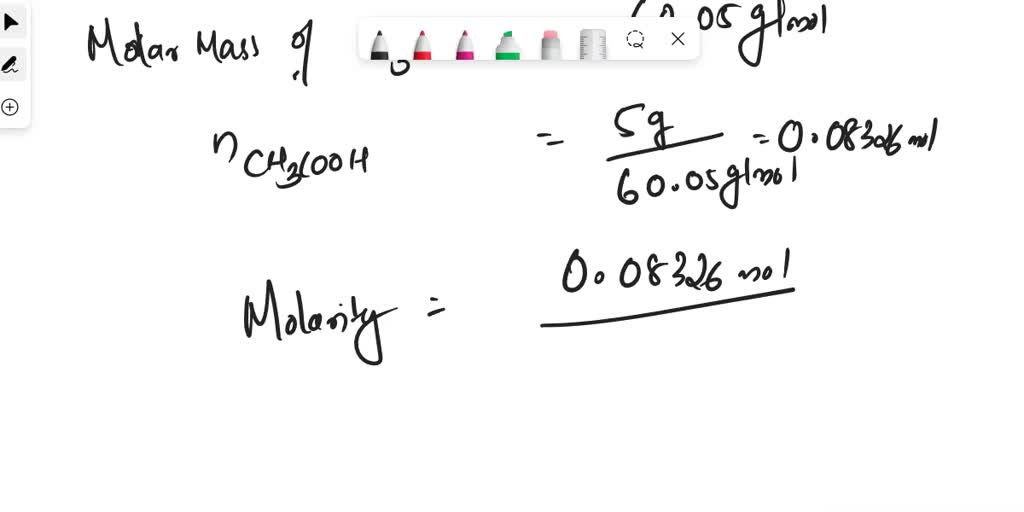 Molar Mass of .05 g/mol
nCH3COOH = 5g / 60.05 g/mol = 0.08326 mol
Molarity = 0.08326 mol